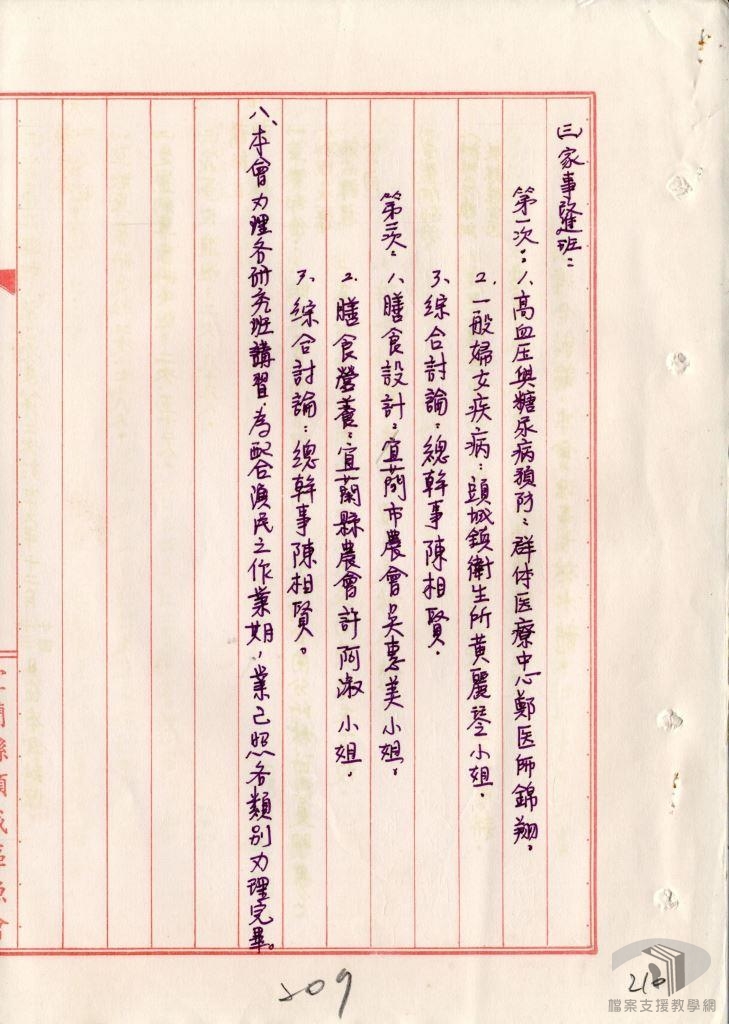 ㈢家事班:
第一次:1、高血压與糖尿病預防:群体医療中心鄭医師錦翔。
2、一般婦女疾病:頭城鎮衛生所黃麗琴小姐。
3、綜合討論:總幹事陳相賢。
第二次:1、膳食設計:宜蘭市農會吳惠美小姐。
2、膳食營養:宜蘭縣農會許阿淑小姐。
3、綜合討論:總幹事陳相賢。
八、本會办理各研究班講習,為配合漁民之作業期,業已照各類別办理完畢。
宜蘭縣頭城區漁會
209
210
檔案支援教學網